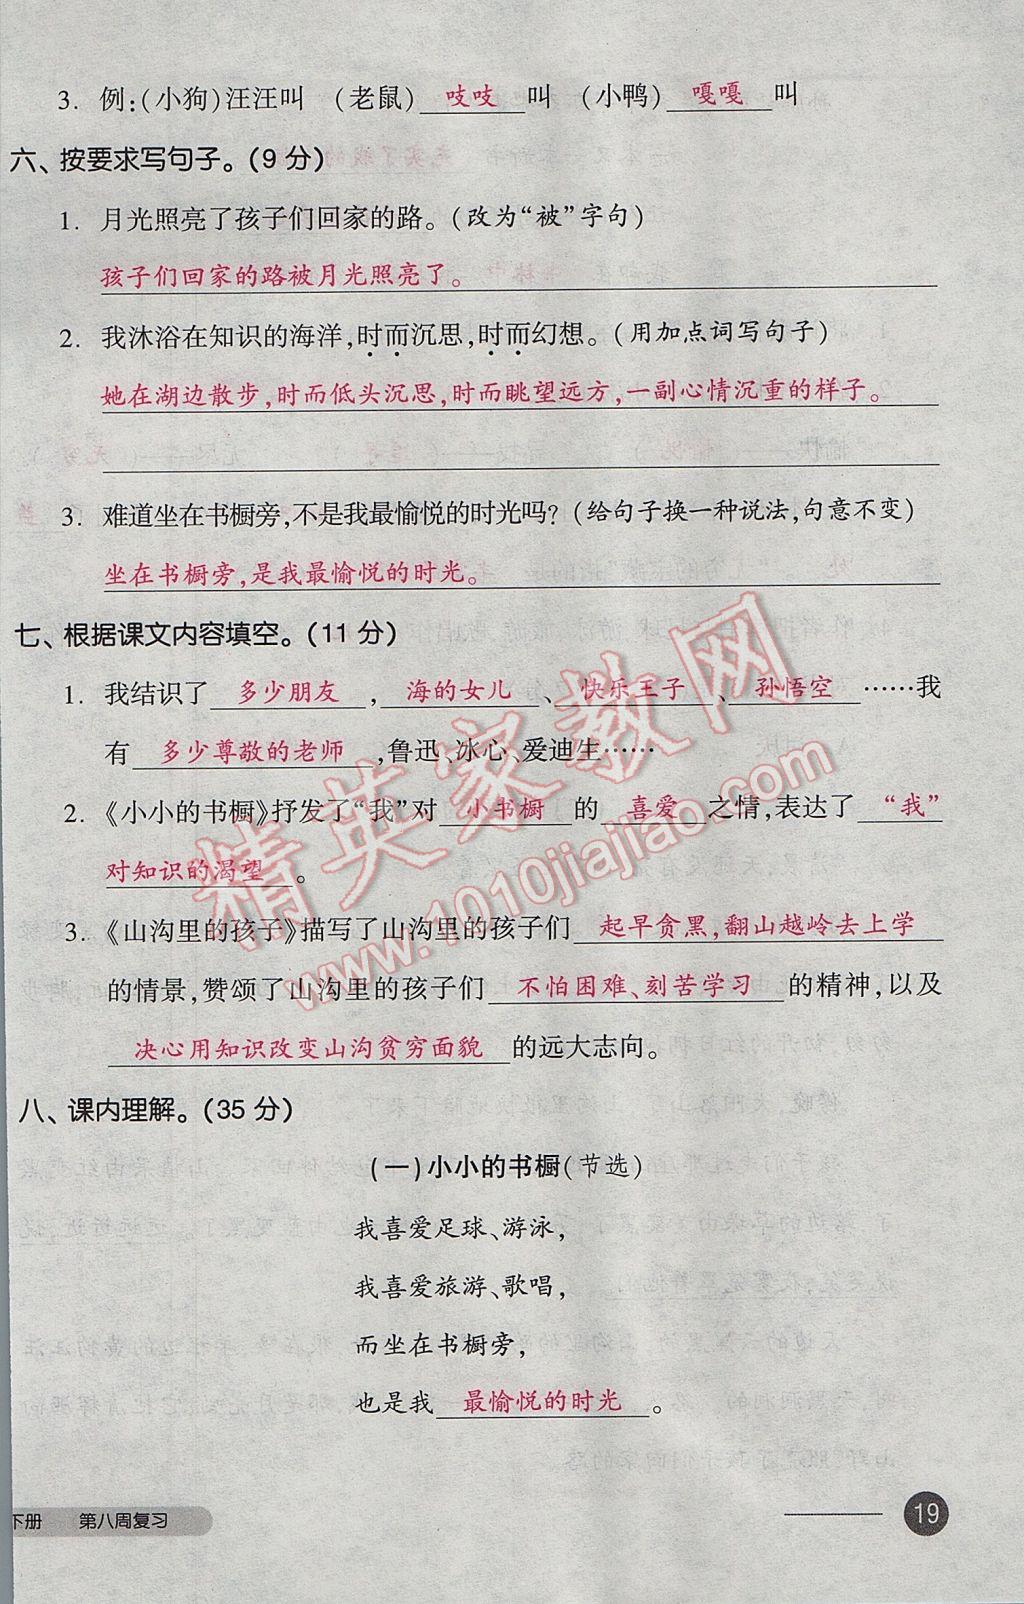 3. 例:(小狗)汪汪叫 (老鼠) 吱吱 叫 (小鸭) 嘎嘎 叫
六、按要求写句子。(9 分)
1. 月光照亮了孩子们回家的路。(改为“被”字句)
孩子们回家的路被月光照亮了。
2. 我沐浴在知识的海洋,时而沉思,时而幻想。(用加点词写句子)
她在湖边散步,时而低头沉思,时而眺望远方,一副心情沉重的样子。
3. 难道坐在书橱旁,不是我最愉悦的时光吗?(给句子换一种说法,句意不变)
坐在书橱旁,是我最愉悦的时光。
七、根据课文内容填空。(11 分)
1. 我结识了 多少朋友 , 海的女儿 、 快乐王子 、 孙悟空 ……我
有 多少尊敬的老师 ,鲁迅、冰心、爱迪生……
2. 《小小的书橱》抒发了“我”对 小书橱 的 喜爱 之情,表达了 “我”
对知识的渴望 。
3. 《山沟里的孩子》描写了山沟里的孩子们 起早贪黑,翻山越岭去上学
的情景,赞颂了山沟里的孩子们 不怕困难、刻苦学习 的精神,以及
决心用知识改变山沟贫穷面貌 的远大志向。
八、课内理解。(35 分)
(一)小小的书橱(节选)
我喜爱足球、游泳,
我喜爱旅游、歌唱,
而坐在书橱旁,
也是我 最愉悦的时光 。
下册 第八周复习
19
精英家教网
www.1010jiajiao.com